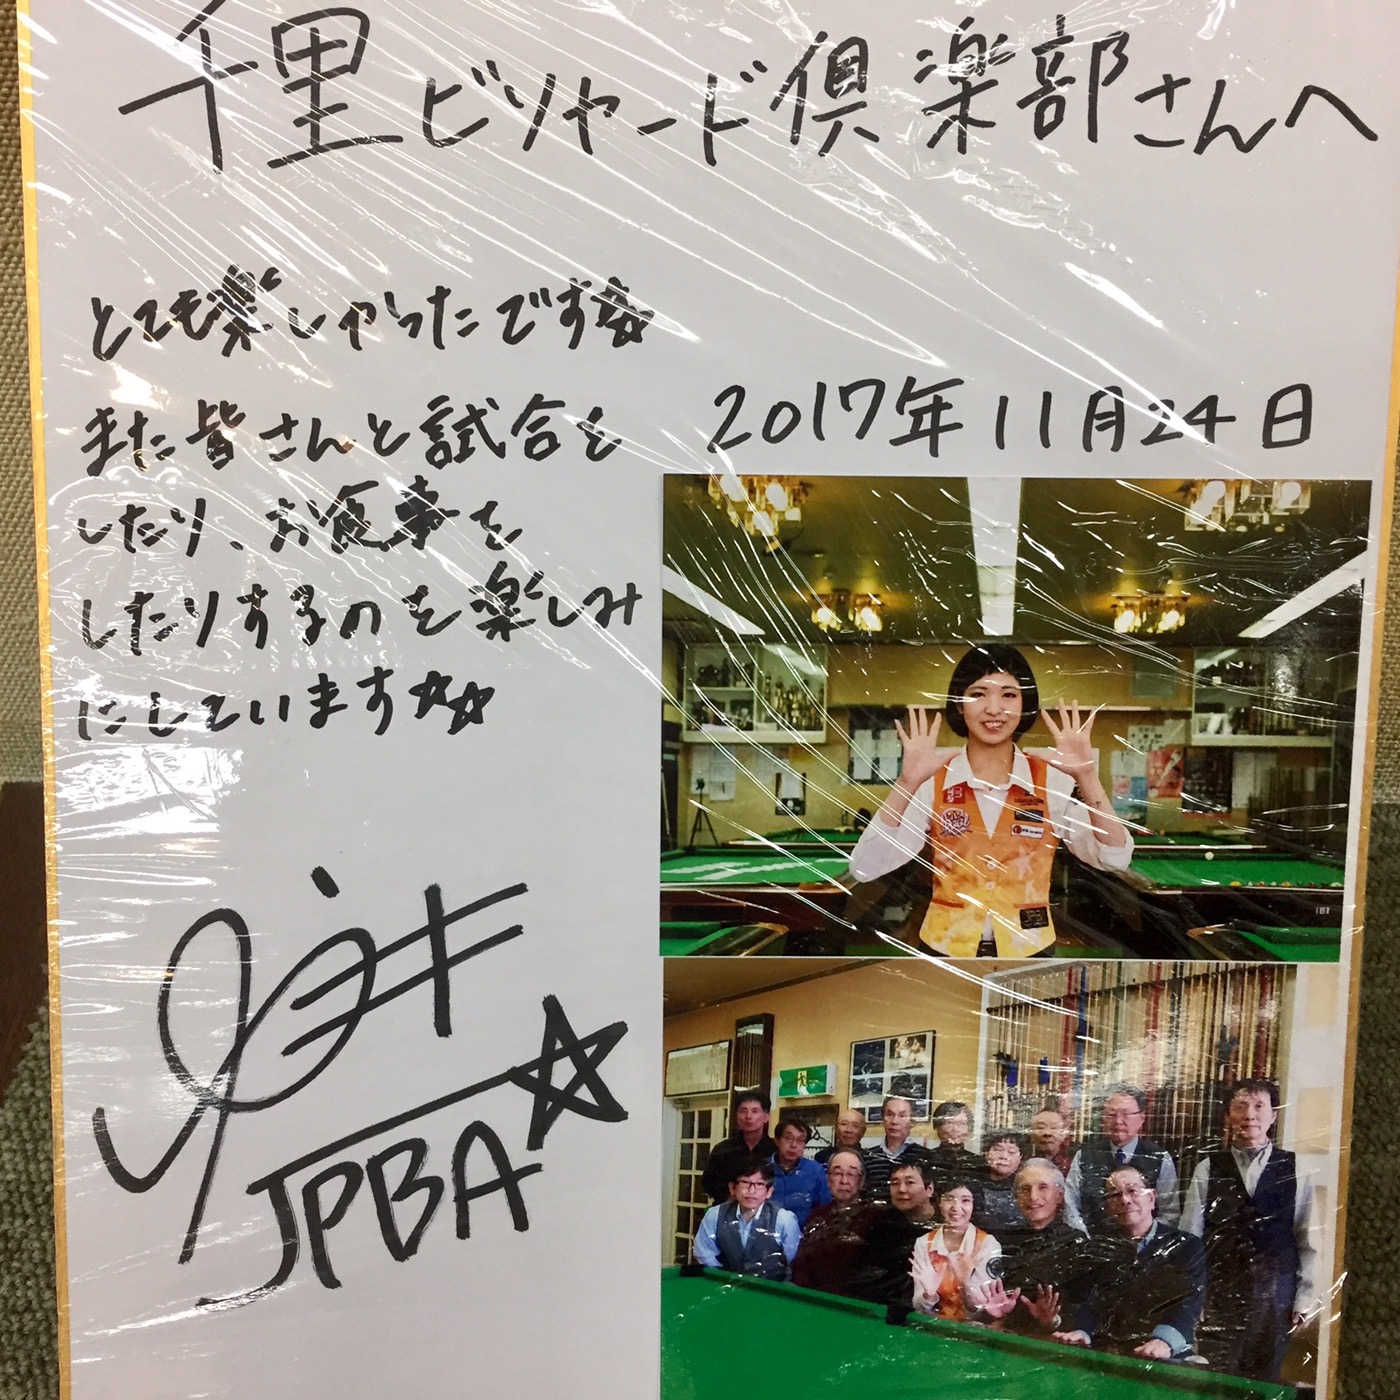 千里ビリヤード倶楽部さんへ
とても楽しかったです☆
また皆さんと試合を
したり、お食事を
したりするのを楽しみ
にしています☆☆
2017年11月24日
JPBA